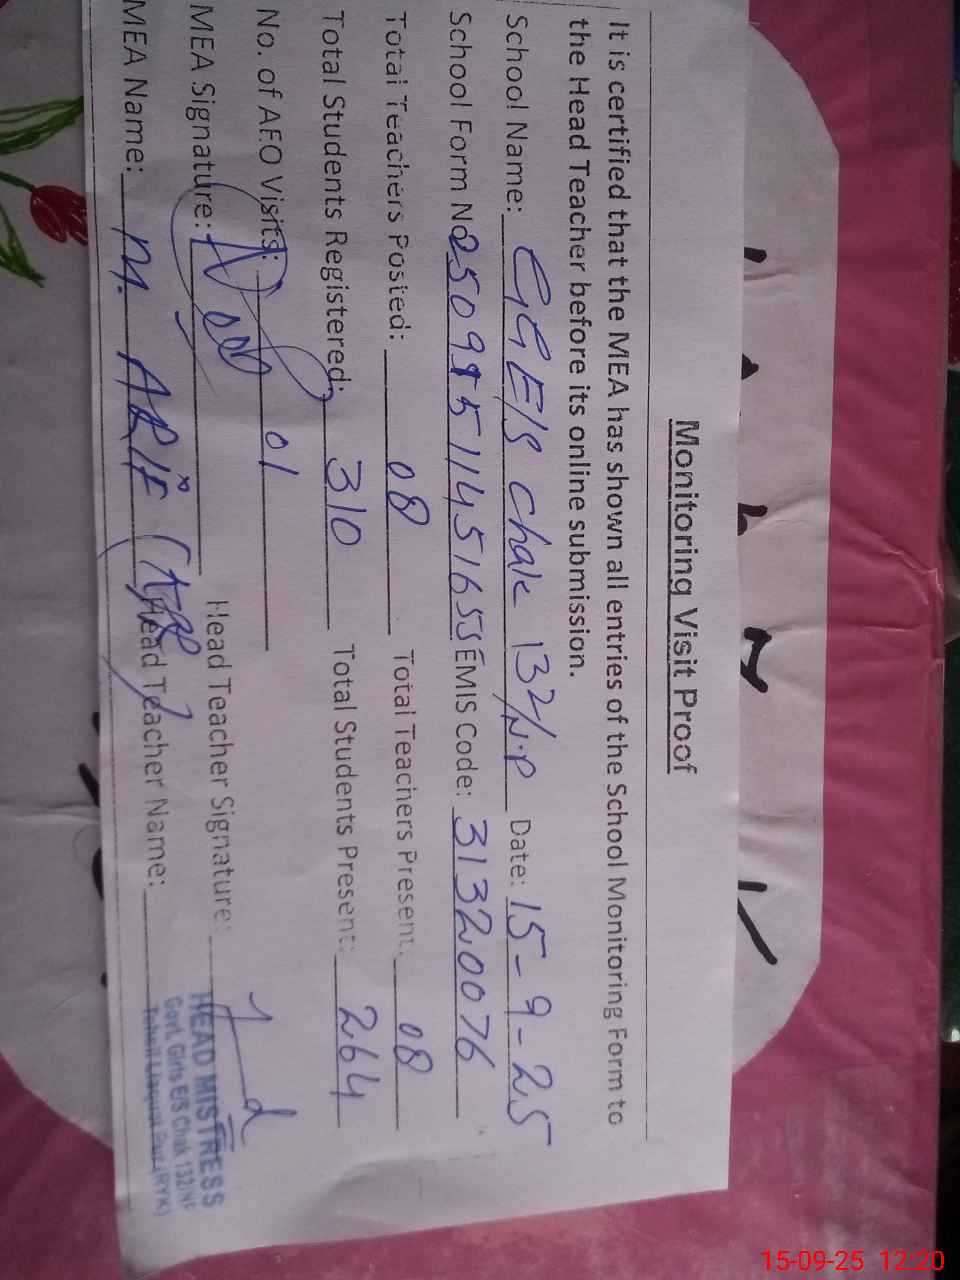 Monitoring Visit Proof
It is certified that the MEA has shown all entries of the School Monitoring Form to
the Head Teacher before its online submission.
School Name: GGE/S chak 132/N.P Date: 15-9-25
School Form No. EMIS Code: 31320076
Total Teachers Posted: 08 Total Teachers Present: 08
Total Students Registered: 310 Total Students Present: 264
No. of AEO Visits: 01
MEA Signature: Head Teacher Signature:
MEA Name: M. ARIF Head Teacher Name:
HEAD MISTRESS
Govt. Girls E/S Chak 132/NP
Tehsil Liaquat Pur (RYK)
15-09-25 12:20